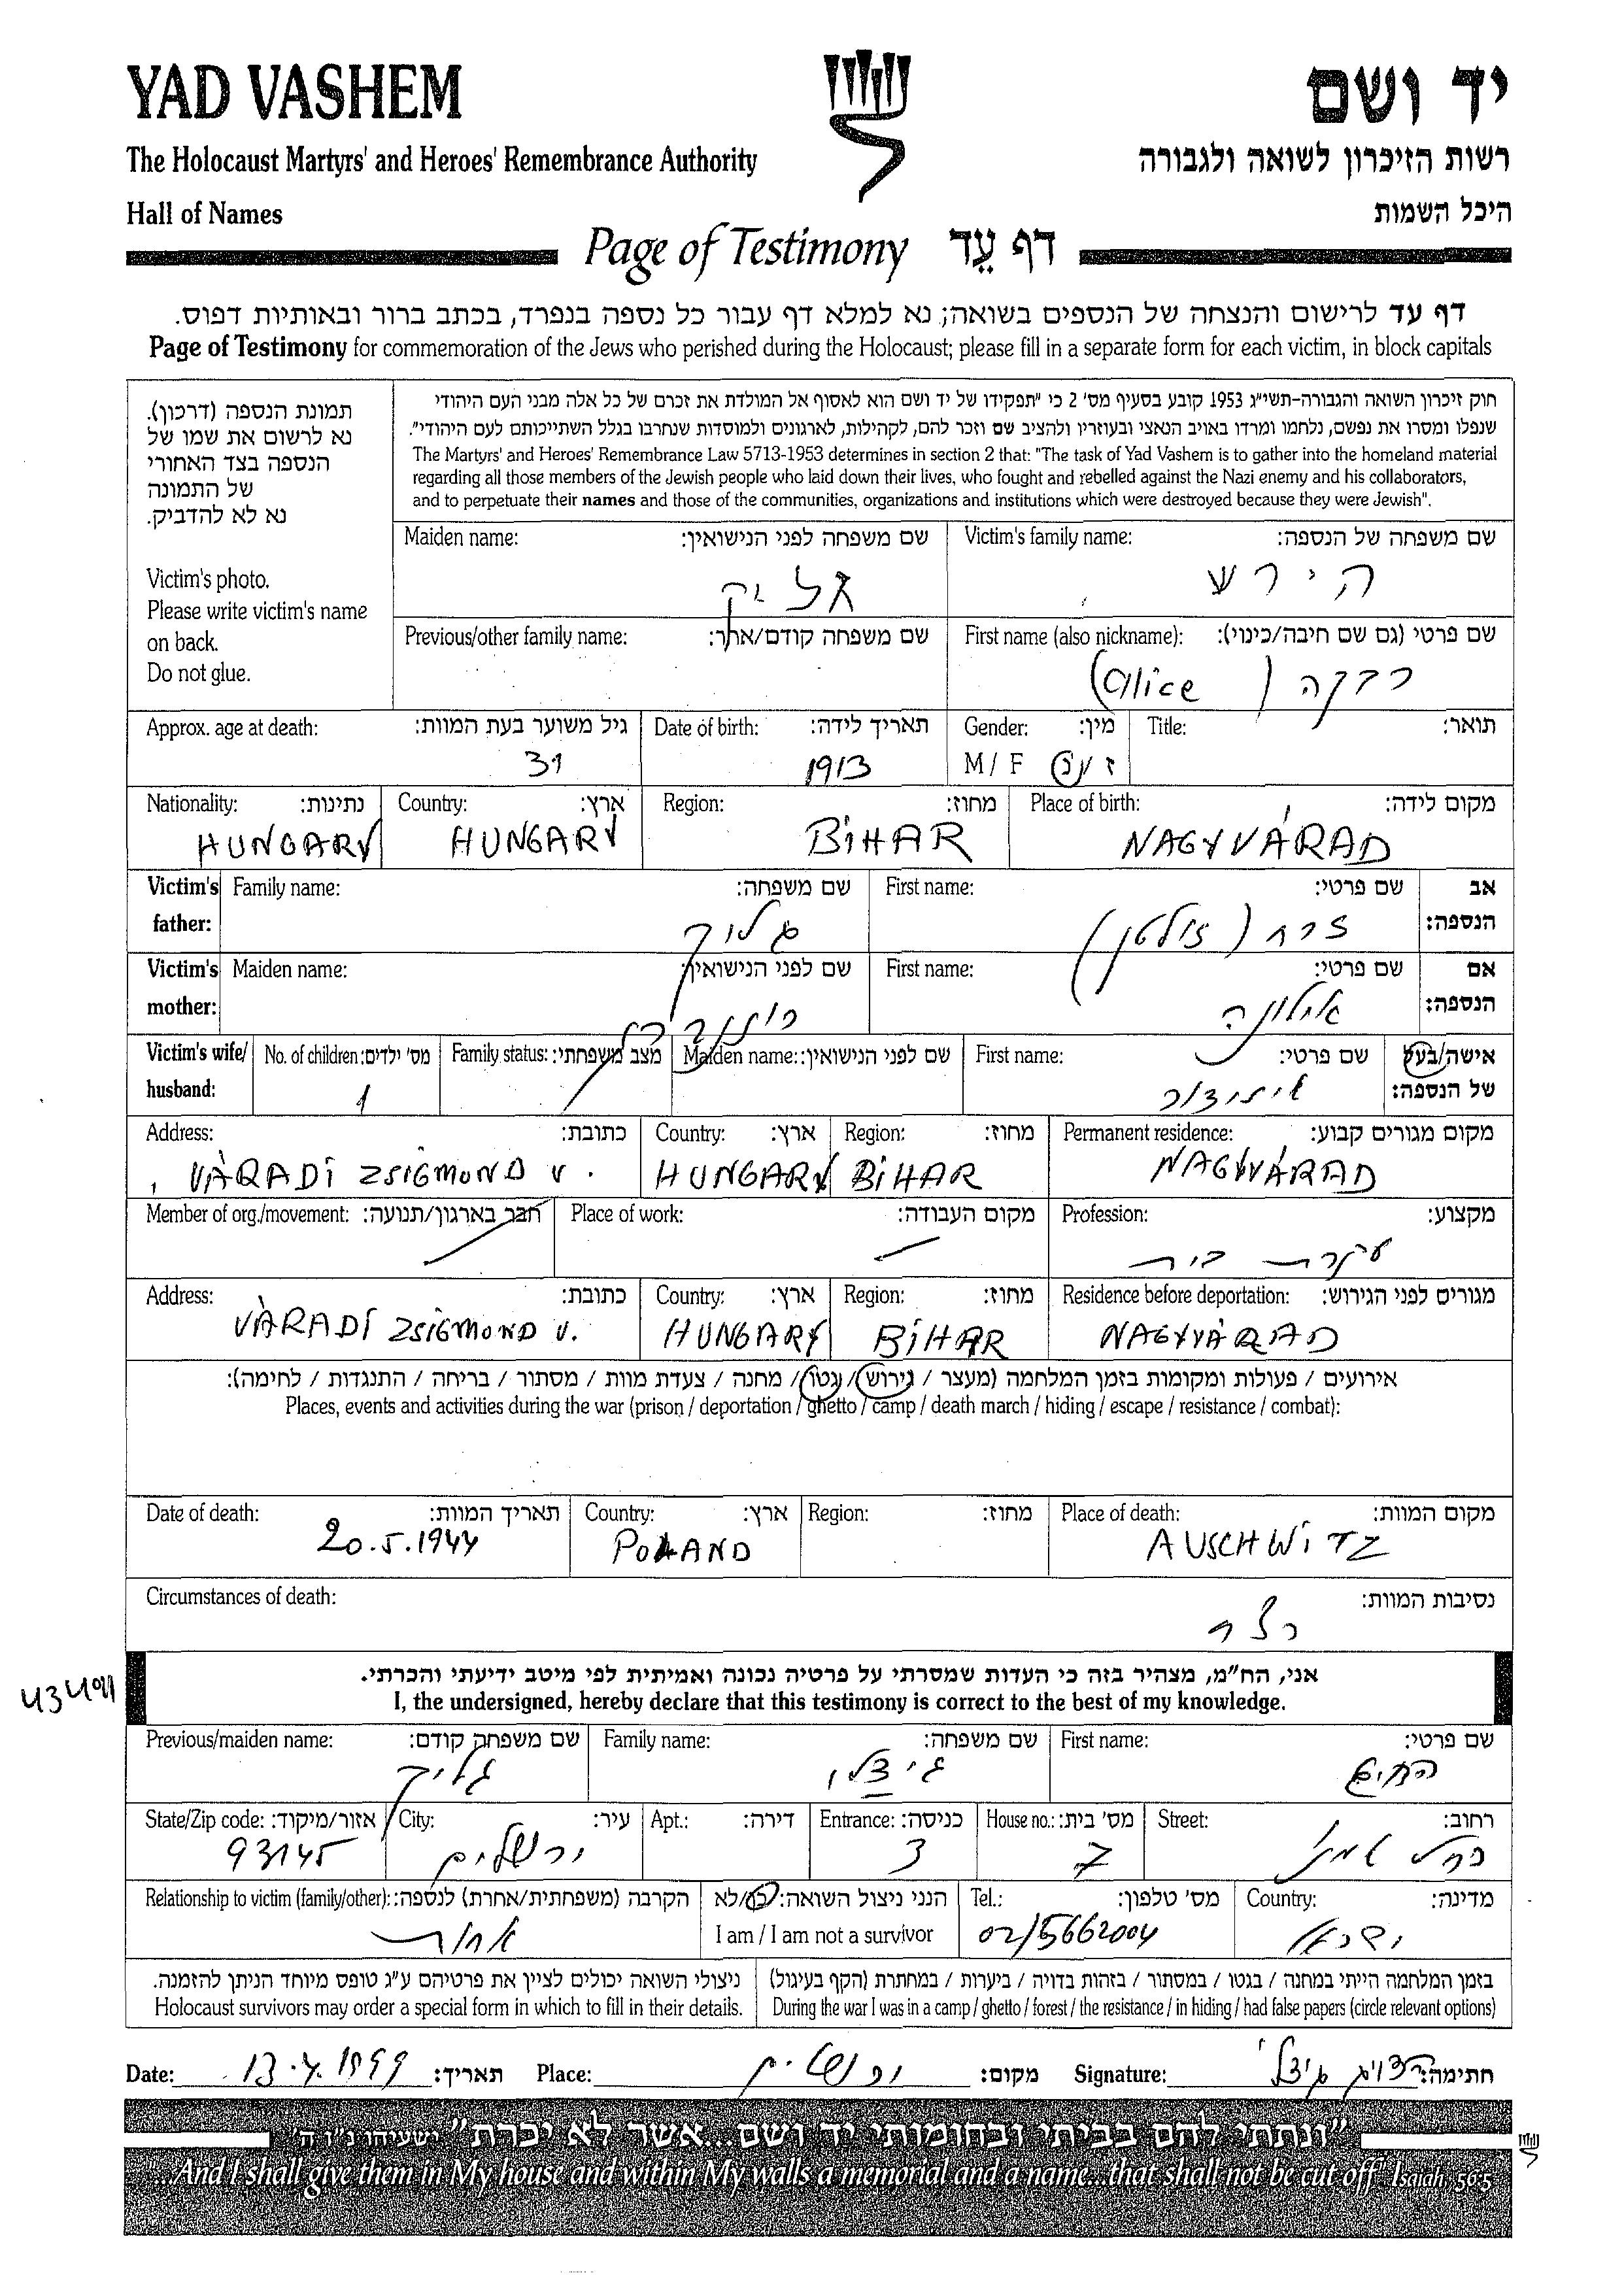 YAD VASHEM
יד ושם
The Holocaust Martyrs' and Heroes' Remembrance Authority
רשות הזיכרון לשואה ולגבורה
Hall of Names
היכל השמות
Page of Testimony דף עֵד
דף עד לרישום והנצחה של הנספים בשואה; נא למלא דף עבור כל נספה בנפרד, בכתב ברור ובאותיות דפוס.
Page of Testimony for commemoration of the Jews who perished during the Holocaust; please fill in a separate form for each victim, in block capitals
תמונת הנספה (דרכון).
נא לרשום את שמו של
הנספה בצד האחורי
של התמונה
נא לא להדביק.
Victim's photo.
Please write victim's name
on back.
Do not glue.
חוק זיכרון השואה והגבורה-תשי"ג 1953 קובע בסעיף מס' 2 כי "תפקידו של יד ושם הוא לאסוף אל המולדת את זכרם של כל אלה מבני העם היהודי
שנפלו ומסרו את נפשם, נלחמו ומרדו באויב הנאצי ובעוזריו ולהציב שם וזכר להם, לקהילות, לארגונים ולמוסדות שנחרבו בגלל השתייכותם לעם היהודי".
The Martyrs' and Heroes' Remembrance Law 5713-1953 determines in section 2 that: "The task of Yad Vashem is to gather into the homeland material
regarding all those members of the Jewish people who laid down their lives, who fought and rebelled against the Nazi enemy and his collaborators,
and to perpetuate their names and those of the communities, organizations and institutions which were destroyed because they were Jewish".
Maiden name: שם משפחה לפני הנישואין: Victim's family name: שם משפחה של הנספה:
הירש
Previous/other family name: שם משפחה קודם/אחר: First name (also nickname): שם פרטי (גם שם חיבה/כינוי):
רבקה (Alice)
Approx. age at death: גיל משוער בעת המוות: Date of birth: תאריך לידה: Gender: מין: Title: תואר:
31 1913 M / F ז / נ
Nationality: נתינות: Country: ארץ: Region: מחוז: Place of birth: מקום לידה:
HUNGARY HUNGARY BIHAR NAGYVÁRAD
Victim's father: Family name: שם משפחה: First name: שם פרטי: אב הנספה:
גליק זרח (זולטן)
Victim's mother: Maiden name: שם לפני הנישואין: First name: שם פרטי: אם הנספה:
אילונה
Victim's wife/ husband: No. of children: מס' ילדים: Family status: מצב משפחתי: Maiden name: שם לפני הנישואין: First name: שם פרטי: אישה/בעל של הנספה:
1 איזידור
Address: כתובת: Country: ארץ: Region: מחוז: Permanent residence: מקום מגורים קבוע:
VÁRADI ZSIGMOND U. HUNGARY BIHAR NAGYVÁRAD
Member of org./movement: חבר בארגון/תנועה: Place of work: מקום העבודה: Profession: מקצוע:
עקרת בית
Address: כתובת: Country: ארץ: Region: מחוז: Residence before deportation: מגורים לפני הגירוש:
VÁRADI ZSIGMOND U. HUNGARY BIHAR NAGYVÁRAD
אירועים / פעולות ומקומות בזמן המלחמה (מעצר / גירוש / גטו / מחנה / צעדת מוות / מסתור / בריחה / התנגדות / לחימה):
Places, events and activities during the war (prison / deportation / ghetto / camp / death march / hiding / escape / resistance / combat):
Date of death: תאריך המוות: Country: ארץ: Region: מחוז: Place of death: מקום המוות:
20.5.1944 POLAND AUSCHWITZ
Circumstances of death: נסיבות המוות:
רצח
אני, הח"מ, מצהיר בזה כי העדות שמסרתי על פרטיה נכונה ואמיתית לפי מיטב ידיעתי והכרתי.
I, the undersigned, hereby declare that this testimony is correct to the best of my knowledge.
Previous/maiden name: שם משפחה קודם: Family name: שם משפחה: First name: שם פרטי:
גליק
State/Zip code: אזור/מיקוד: City: עיר: Apt.: דירה: Entrance: כניסה: House no.: מס' בית: Street: רחוב:
93145 ירושלים 3 7
Relationship to victim (family/other): הקרבה (משפחתית/אחרת) לנספה: הנני ניצול השואה: כן/לא Tel.: מס' טלפון: Country: מדינה:
אחות I am / I am not a survivor 02/5662004 ישראל
ניצולי השואה יכולים לציין את פרטיהם ע"ג טופס מיוחד הניתן להזמנה. בזמן המלחמה הייתי במחנה / בגטו / במסתור / בזהות בדויה / ביערות / במחתרת (הקף בעיגול)
Holocaust survivors may order a special form in which to fill in their details. During the war I was in a camp / ghetto / forest / the resistance / in hiding / had false papers (circle relevant options)
Date: 13.4.1999 תאריך: Place: ירושלים מקום: Signature: חתימה:
"ונתתי להם בביתי ובחומותי יד ושם...אשר לא יכרת" ישעיהו נ"ו ה'
"...And I shall give them in My house and within My walls a memorial and a name...that shall not be cut off" Isaiah, 56:5